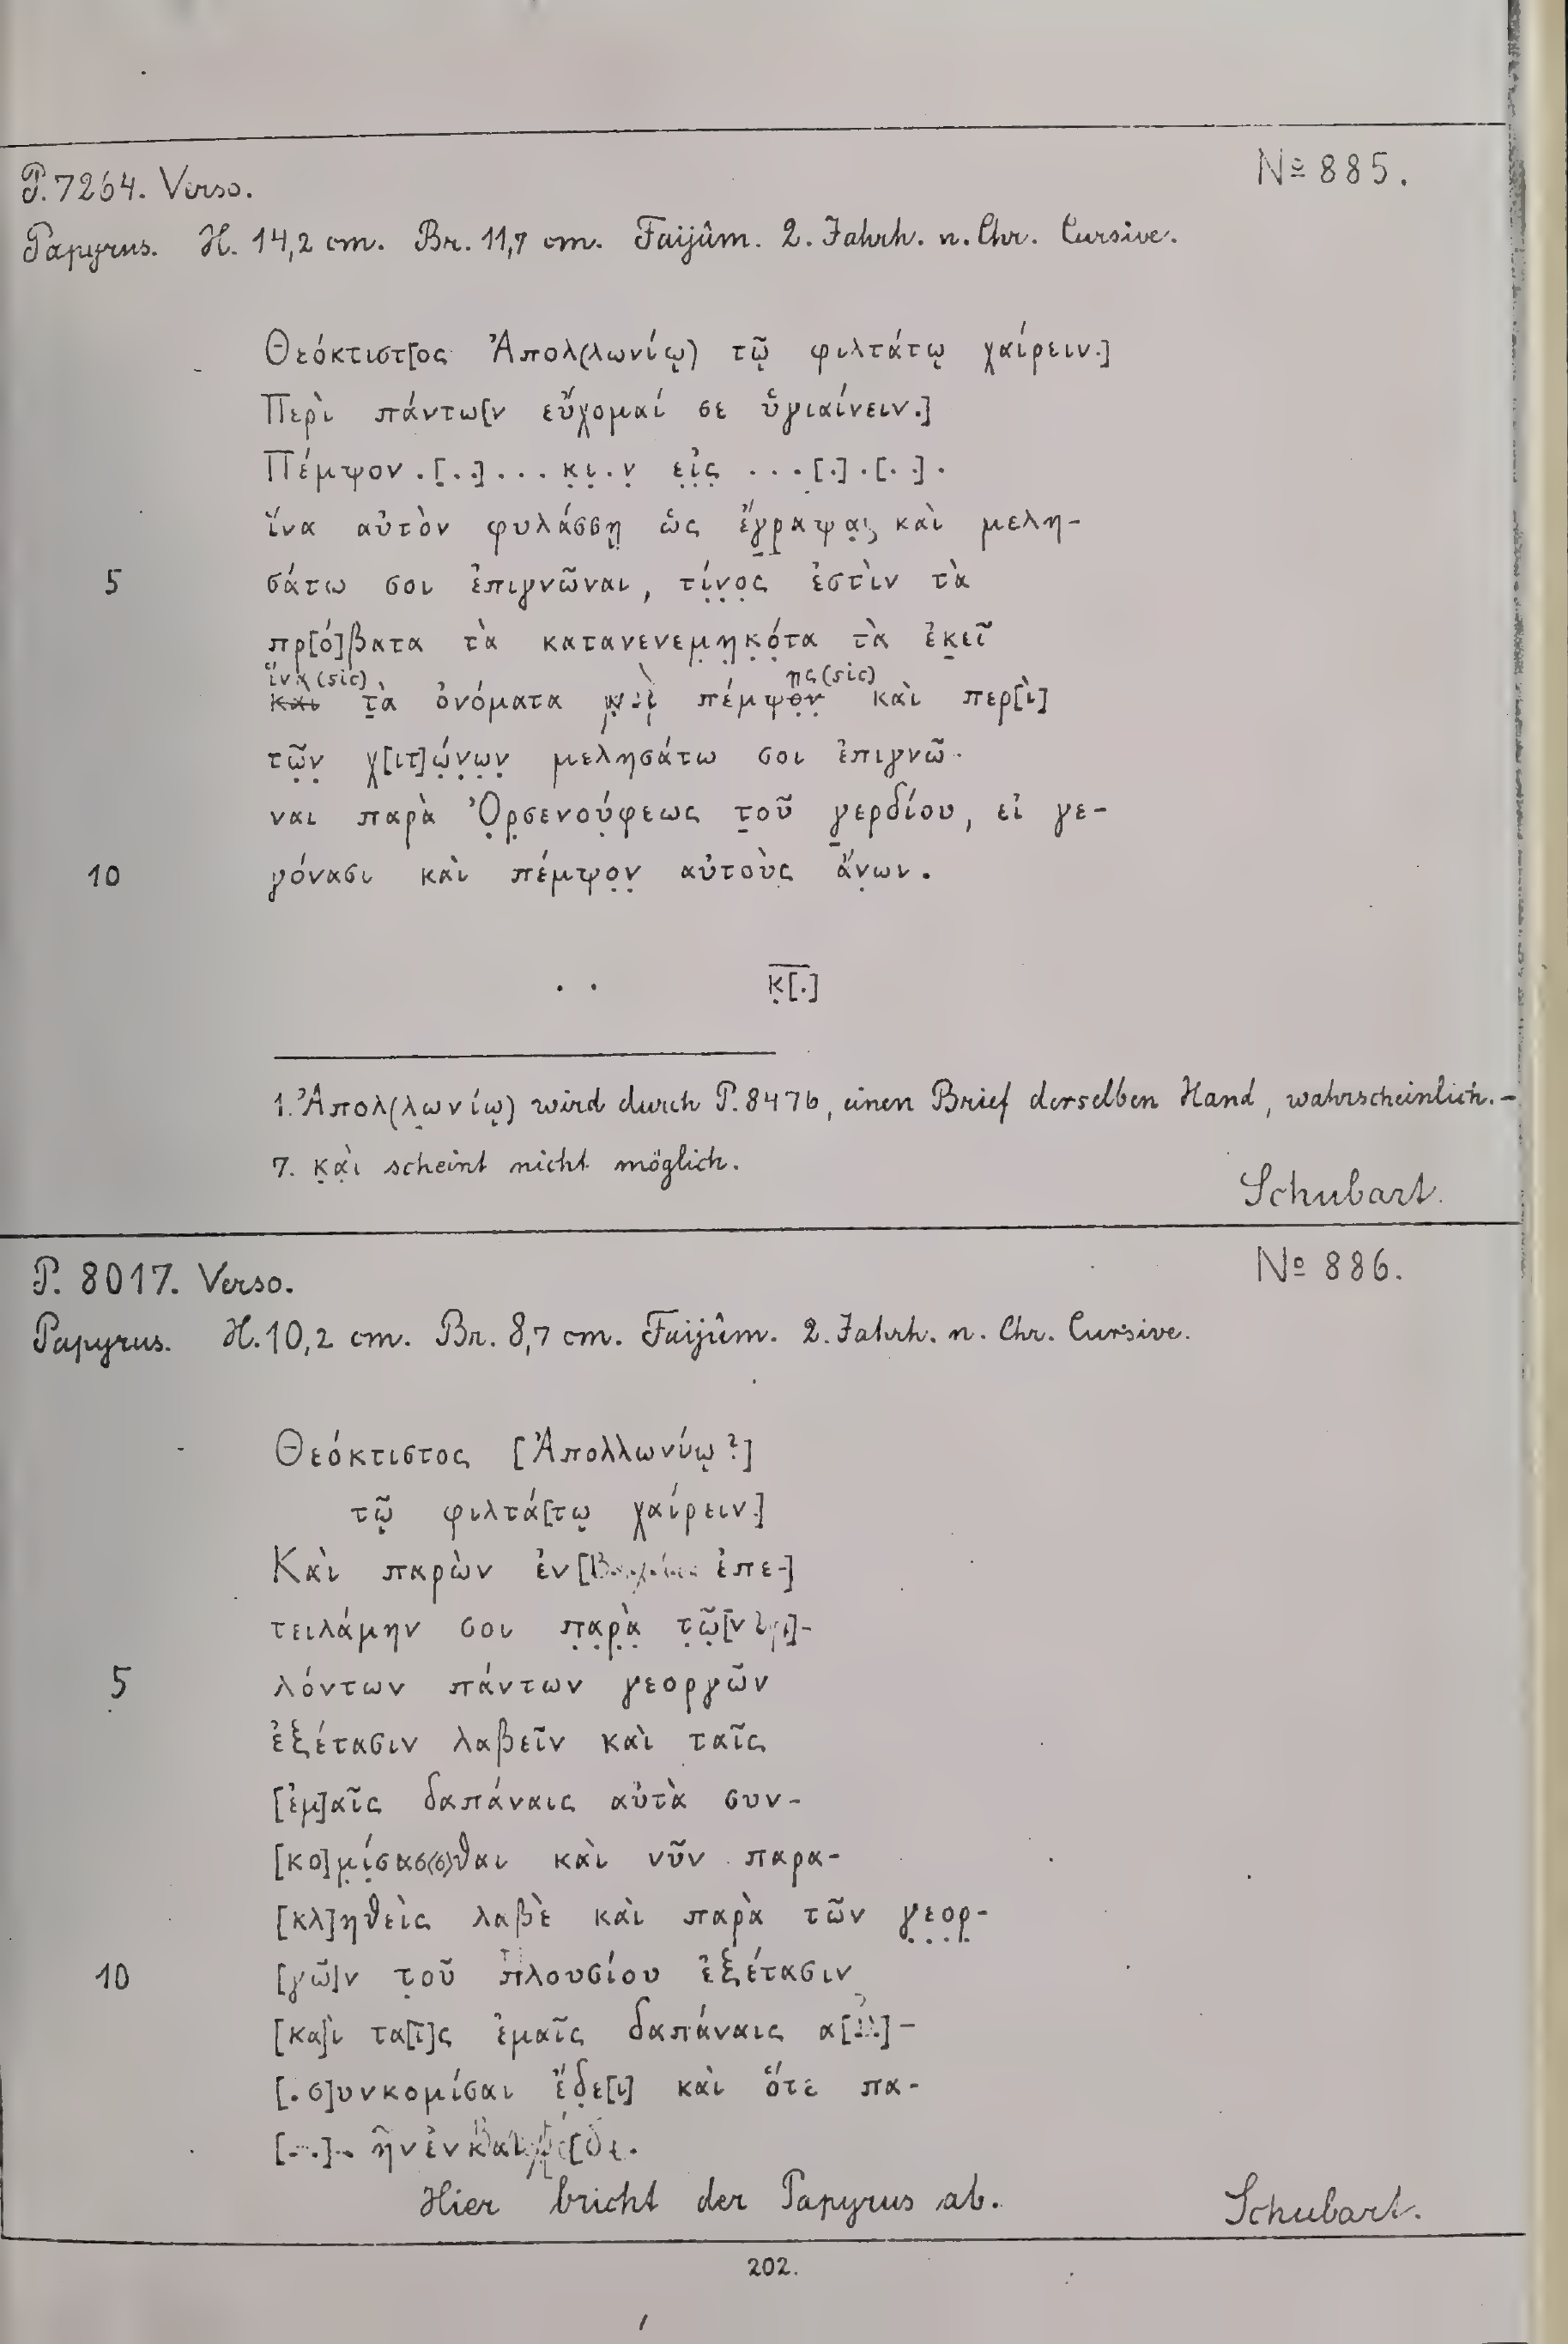 P. 7264. Verso. № 885.
Papyrus. H. 14,2 cm. Br. 11,7 cm. Faijûm. 2. Jahrh. n. Chr. Cursive.
Θεόκτιστ[ος Ἀπολ(λωνίῳ) τῷ φιλτάτῳ χαίρειν.]
Περὶ πάντω[ν εὔχομαί σε ὑγιαίνειν.]
Πέμψον .[..]... κ̣ι̣.ν̣ ε̣ἰ̣ς̣ ...[.].[..].
ἵνα αὐτὸν φυλάσσῃ ὡς ἔγ̣ραψα̣ς̣ καὶ μελη-
5 σάτω σοι ἐπιγνῶναι, τί̣ν̣ο̣ς ἐστὶν τὰ
πρ[ό]βατα τὰ κατανενεμ̣η̣κ̣ό̣τα τὰ ἐκ̣εῖ
ἵνα (sic) ης (sic)
και τ̣ὰ ὀνόματα πέμψο̣ν̣ καὶ περ[ὶ]
τῶ̣ν̣ χ[ιτ]ώ̣ν̣ω̣ν̣ μελησάτω σοι ἐπιγνῶ-
ναι παρὰ Ὀ̣ρ̣σενού̣φεως τ̣οῦ γ̣ερδίου, εἰ γε-
10 γόνασι καὶ πέμψο̣ν̣ αὐτοὺς ἄν̣ων.
. . κ̣[.]
1. Ἀπολ(λωνίῳ) wird durch P. 8476, einen Brief derselben Hand, wahrscheinlich. –
7. κ̣α̣ὶ scheint nicht möglich.
Schubart.
P. 8017. Verso. № 886.
Papyrus. H. 10,2 cm. Br. 8,7 cm. Faijûm. 2. Jahrh. n. Chr. Cursive.
Θεόκτιστος [Ἀπολλωνίῳ?]
τῷ φιλτά[τῳ χαίρειν.]
Καὶ παρὼν ἐν [ ἐπε-]
τειλάμην σοι π̣α̣ρ̣ὰ̣ τ̣ῶ̣[ν
5 λόντων πάντων γεοργῶν
ἐξέτασιν λαβεῖν καὶ ταῖς
[ἐμ]αῖς δαπάναις αὐτὰ συν-
[κο]μ̣ί̣σασ(σ)θαι καὶ νῦν παρα-
[κλ]ηθεὶς λαβὲ καὶ παρὰ τῶν γ̣ε̣ο̣ρ̣-
10 [γῶ]ν τ̣οῦ Πλουσίου ἐξέτασιν
[κα]ὶ τα[ῖ]ς ἐμαῖς δαπάναις
[. σ]υνκομίσαι ἔδ̣ε[ι] καὶ ὅτε πα-
[...] ῆν ἐν
Hier bricht der Papyrus ab. Schubart.
202.